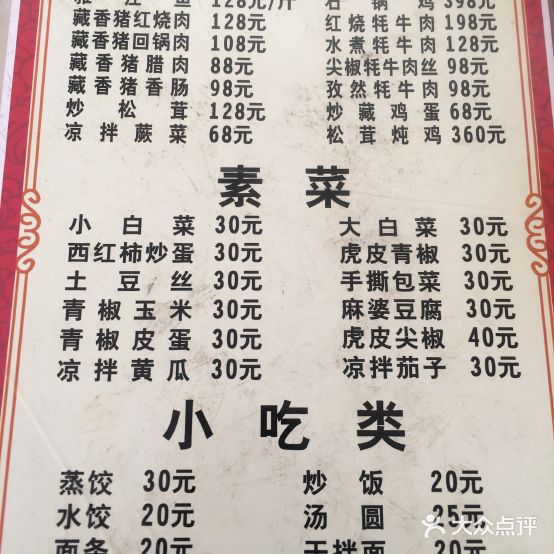 雅江鱼 128元/斤 石锅鸡 398元
藏香猪红烧肉 128元 红烧牦牛肉 198元
藏香猪回锅肉 108元 水煮牦牛肉 128元
藏香猪腊肉 88元 尖椒牦牛肉丝 98元
藏香猪香肠 98元 孜然牦牛肉 98元
炒松茸 128元 炒藏鸡蛋 68元
凉拌蕨菜 68元 松茸炖鸡 360元
素菜
小白菜 30元 大白菜 30元
西红柿炒蛋 30元 虎皮青椒 30元
土豆丝 30元 手撕包菜 30元
青椒玉米 30元 麻婆豆腐 30元
青椒皮蛋 30元 虎皮尖椒 40元
凉拌黄瓜 30元 凉拌茄子 30元
小吃类
蒸饺 30元 炒饭 20元
水饺 20元 汤圆 25元
面条 20元 干拌面 20元
大众点评